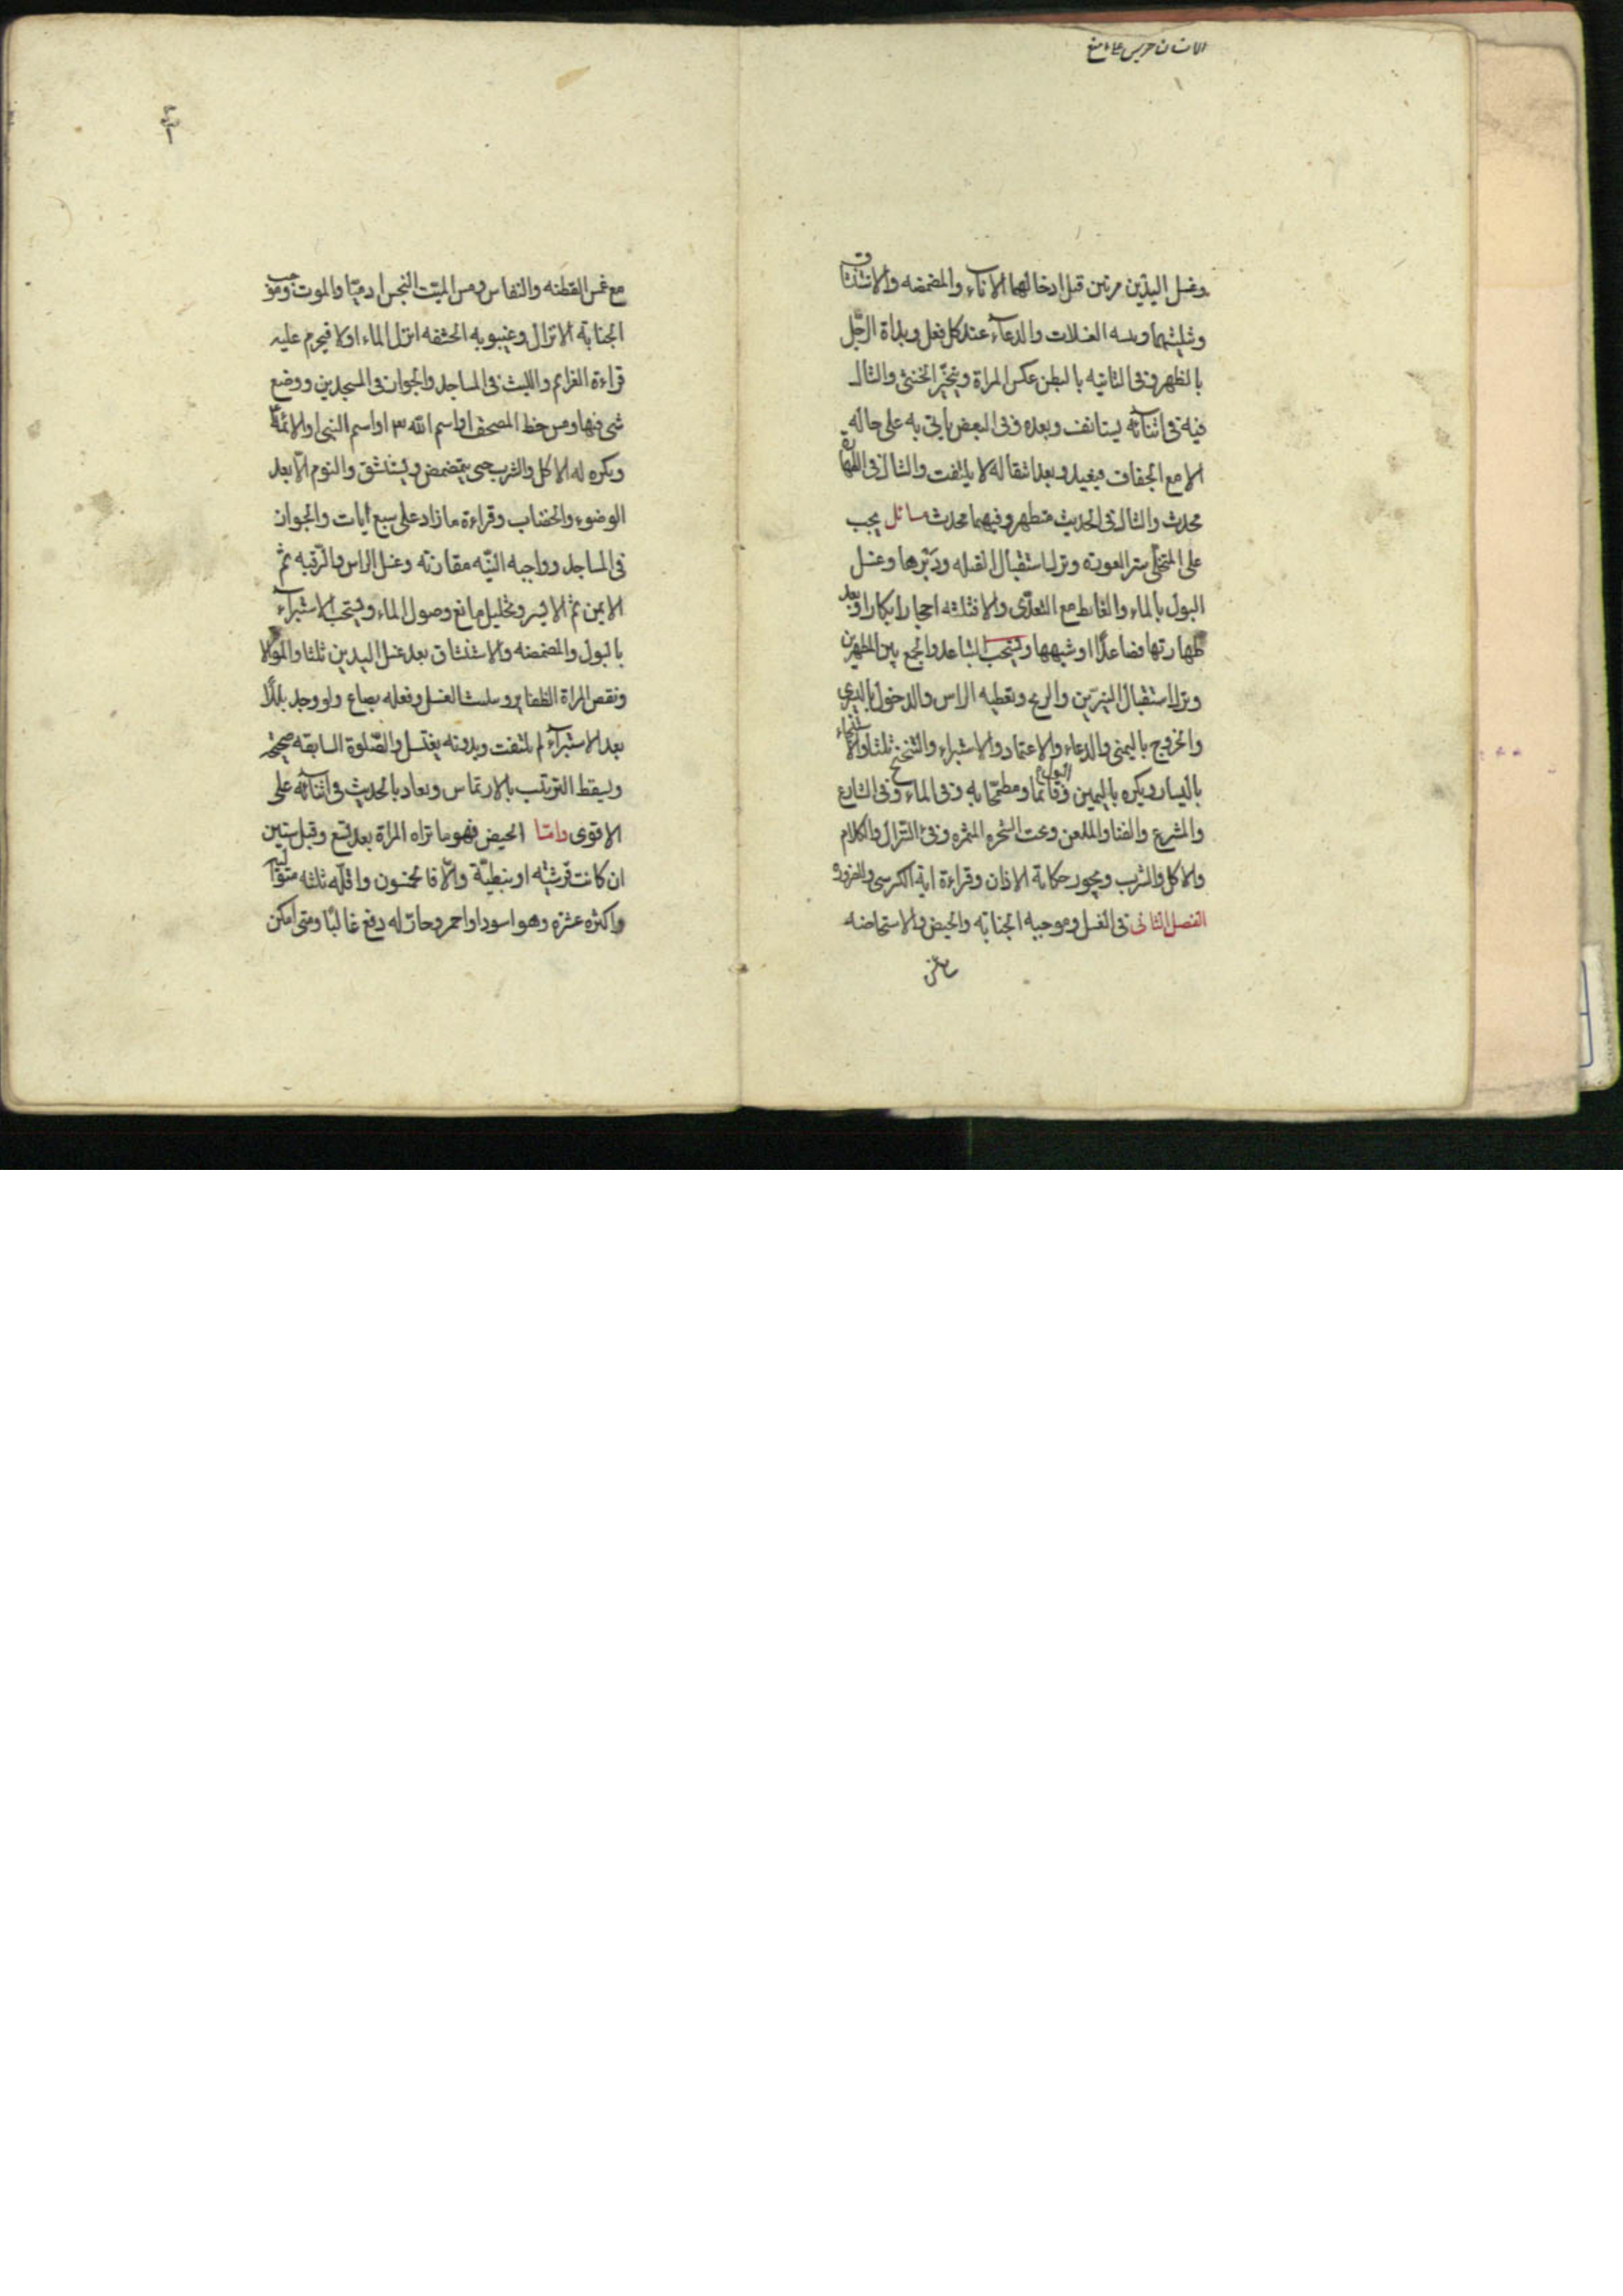 وغسل اليدين مرتين قبل ادخالهما الاناء والمضمضه والاستنشاق
وتثليثهما وتثنيه الغسلات والدعاء عند كل فعل وبداة الرجل
بالظهر وفى الثانيه بالبطن عكس المراة ويتخير الخنثى والشاك
فيه فى اثنائه يستانف وبعده وفى البعض ياتى به على حاله
الا مع الجفاف فيعيد وبعد انتقاله لا يلتفت والشاك فى الطهارة
محدث والشاك فى الحدث متطهر وفيهما محدث مسائل يجب
على المتخلى ستر العورة وترك استقبال القبله ودبرها وغسل
البول بالماء والغايط مع التعدى والا فثلثه احجار ابكار او بعد
طهارتها فصاعدا او شبهها ويستحب التباعد والجمع بين المطهرين
وترك استقبال النيرين والريح وتغطيه الراس والدخول باليسرى
والخروج باليمنى والدعاء والاعتماد والاستبراء والتنحنح ثلثا والاستنجاء
باليسار ويكره باليمين وقائما ومطمحا به وفى الماء وفى الشارع
والمشرع والفنا والملعن وتحت الشجره المثمره وفئ النزال والكلام
والاكل والشرب ويجوز حكاية الاذان وقراءة اية الكرسى وللضرورة
الفصل الثانى فى الغسل وموجبه الجنابة والحيض والاستحاضه
مع غمس القطنه والنفاس ومس الميت النجس ادميا والموت وموجب
الجنابة الانزال وغيبوبه الحشفه انزل الماء اولا فيحرم عليه
قراءة العزائم واللبث فى المساجد والجواز فى المسجدين ووضع
شى فيها ومس خط المصحف او اسم الله او اسم النبى او الائمة
ويكره له الاكل والشرب حتى يتمضمض ويستنشق والنوم الا بعد
الوضوء والخضاب وقراءة ما زاد على سبع ايات والجواز
فى المساجد وواجبه النيه مقارنة وغسل الراس والرقبه ثم
الايمن ثم الايسر وتخليل مانع وصول الماء ويستحب الاستبراء
بالبول والمضمضه والاستنشاق بعد غسل اليدين ثلثا والموالا
ونقض المراة الظفاير وتثليث الغسل وفعله بصاع ولو وجد بللا
بعد الاستبراء لم يلتفت وبدونه يغتسل والصلوة السابقه صحيحه
ويسقط الترتيب بالارتماس ويعاد بالحدث فى اثنائه على
الاقوى واما الحيض فهو ما تراه المراة بعد تسع وقبل ستين
ان كانت قرشيه او نبطية والا فالخمسون واقله ثلثه متواليه
واكثره عشرة وهو اسود او احمر وحار له دفع غالبا ومتى امكن